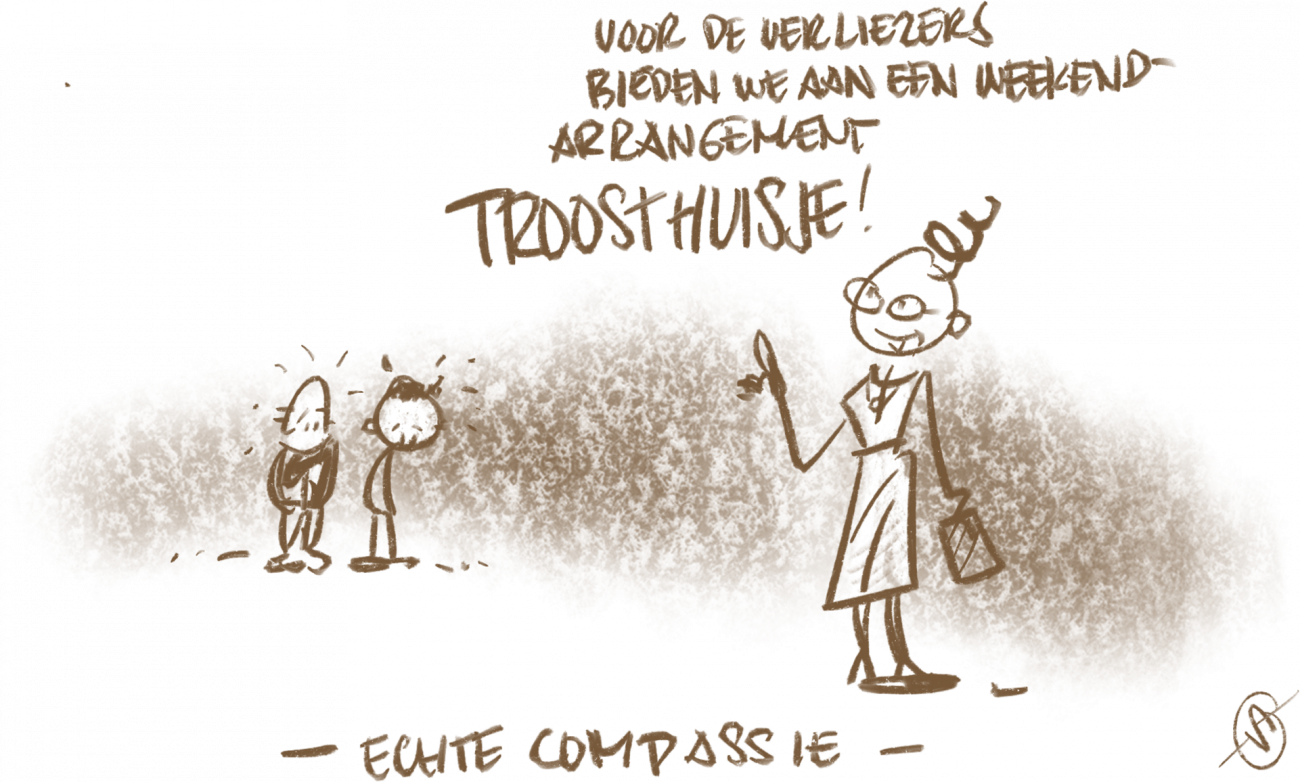 VOOR DE VERLIEZERS
BIEDEN WE AAN EEN WEEKEND-
ARRANGEMENT
TROOSTHUISJE!
- ECHTE COMPASSIE -